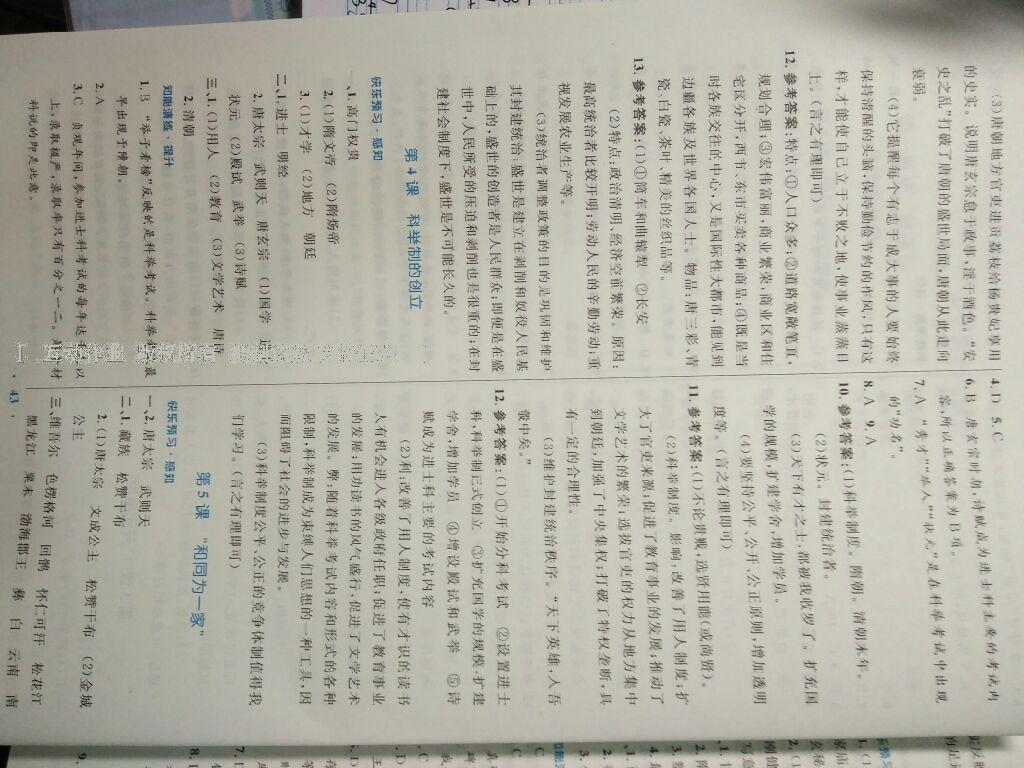 (3)唐朝地方官吏进贡荔枝给杨贵妃享用
的史实。说明唐玄宗怠于政事,淫于酒色。“安
史之乱”打破了唐朝的盛世局面,唐朝从此走向
衰弱。
(4)它提醒每个有志于成大事的人要始终
保持清醒的头脑,保持勤俭节约的作风,只有这
样,才能使自己立于不败之地,使事业蒸蒸日
上。(言之有理即可)
12. 参考答案:特点:①人口众多;②道路宽敞笔直,
规划合理;③宏伟富丽,商业繁荣,商业区和住
宅区分开;西市、东市买卖各种商品;④既是当
时各族交往的中心,又是国际性大都市,能见到
边疆各族及世界各国人士。物品:唐三彩、青
瓷、白瓷、茶叶、精美的丝织品等。
13. 参考答案:(1)①筒车和曲辕犁 ②长安
(2)特点:政治清明、经济空前繁荣。原因:
最高统治者比较开明;劳动人民的辛勤劳动;重
视发展农业生产等。
(3)统治者调整政策的目的是巩固和维护
其封建统治;盛世是建立在剥削和奴役人民基
础上的,盛世的创造者是人民群众;即便是在盛
世中,人民所受的压迫和剥削也是很重的;在封
建社会制度下,盛世是不可能长久的。
第4课 科举制的创立
快乐预习·感知
一、1. 高门权贵
2. (1)隋文帝 (2)隋炀帝
3. (1)才学 (2)地方 朝廷
二、1. 进士 明经
2. 唐太宗 武则天 唐玄宗 (1)国学
状元 (2)殿试 武举 (3)诗赋
三、1. (1)用人 (2)教育 (3)文学艺术 唐诗
2. 清朝
知能演练·提升
1. B “举子看榜”反映的是科举考试。科举
早出现于隋朝。
2. A
3. C 贞观年间,参加进士科考试的每年达
上,录取极严,录取率只有百分之一二。
料说的即是此意。
4. D 5. C
6. B 唐玄宗时期,诗赋成为进士科主要的考试内
容,所以正确答案为B项。
7. A “秀才”“举人”“状元”是在科举考试中出现
的“功名”。
8. A 9. A
10. 参考答案:(1)科举制度。隋朝。清朝末年。
(2)状元。封建统治者。
(3)天下有才之士,都被我收罗了。扩充国
学的规模,扩建学舍,增加学员。
(4)要坚持公平、公开、公正原则,增加透明
度等。(言之有理即可)
11. 参考答案:(1)不论贵贱,选贤用能(或尚贤)。
(2)科举制度。影响:改善了用人制度;扩
大了官吏来源;促进了教育事业的发展;推动了
文学艺术的繁荣;选拔官吏的权力从地方集中
到朝廷,加强了中央集权;打破了特权垄断,具
有一定的合理性。
(3)维护封建统治秩序。“天下英雄,入吾
彀中矣。”
12. 参考答案:(1)①开始分科考试 ②设置进士
科,科举制正式创立 ③扩充国学的规模,扩建
学舍,增加学员 ④增设殿试和武举 ⑤诗
赋成为进士科主要的考试内容
(2)利:改善了用人制度,使有才识的读书
人有机会进入各级政府任职;促进了教育事业
的发展;用功读书的风气盛行,促进了文学艺术
的发展。弊:随着科举考试内容和形式的各种
限制,科举制成为束缚人们思想的一种工具,因
而阻碍了社会的进步与发展。
(3)科举制度公平、公正的竞争体制值得我
们学习。(言之有理即可)
第5课 “和同为一家”
快乐预习·感知
一、2. 唐太宗 武则天
二、1. 藏族 松赞干布
2. (1)唐太宗 文成公主 松赞干布 (2)金城
公主
三、维吾尔 色楞格河 回鹘 怀仁可汗 松花江
黑龙江 粟末 渤海郡王 彝 白 云南 南
· 43 ·